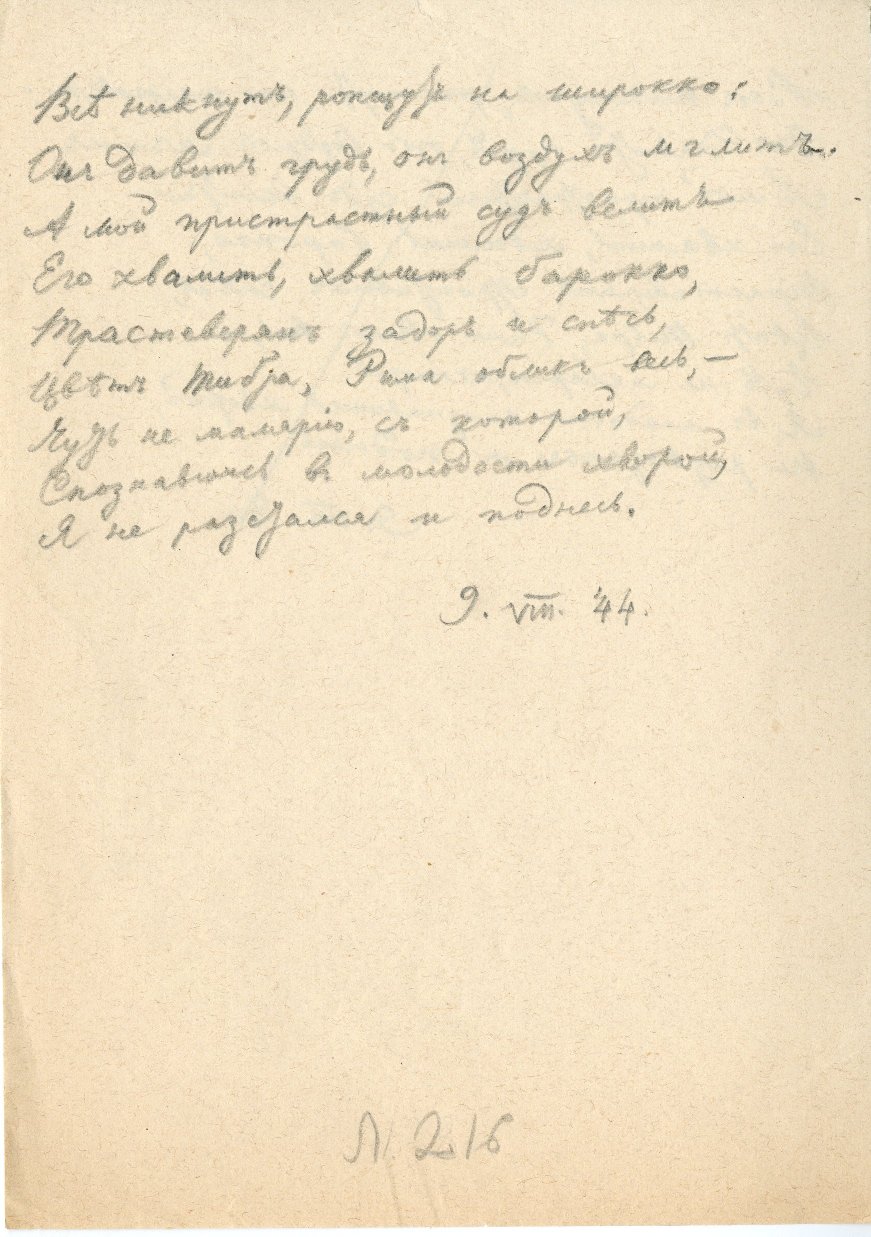 Всѣ никнутъ, ропщутъ на широкко:
Онъ давитъ грудь, онъ воздухъ мглитъ.
А мой пристрастный судъ велитъ
Его хвалить, хвалить барокко,
Трастеверянъ задоръ и спѣсь,
Цвѣтъ Тибра, Рима обликъ весь,—
Чуть не малярію, съ которой,
Спознавшись въ молодости хворой,
Я не разстался и поднесь.
9. VIII. '44.
Л. 216